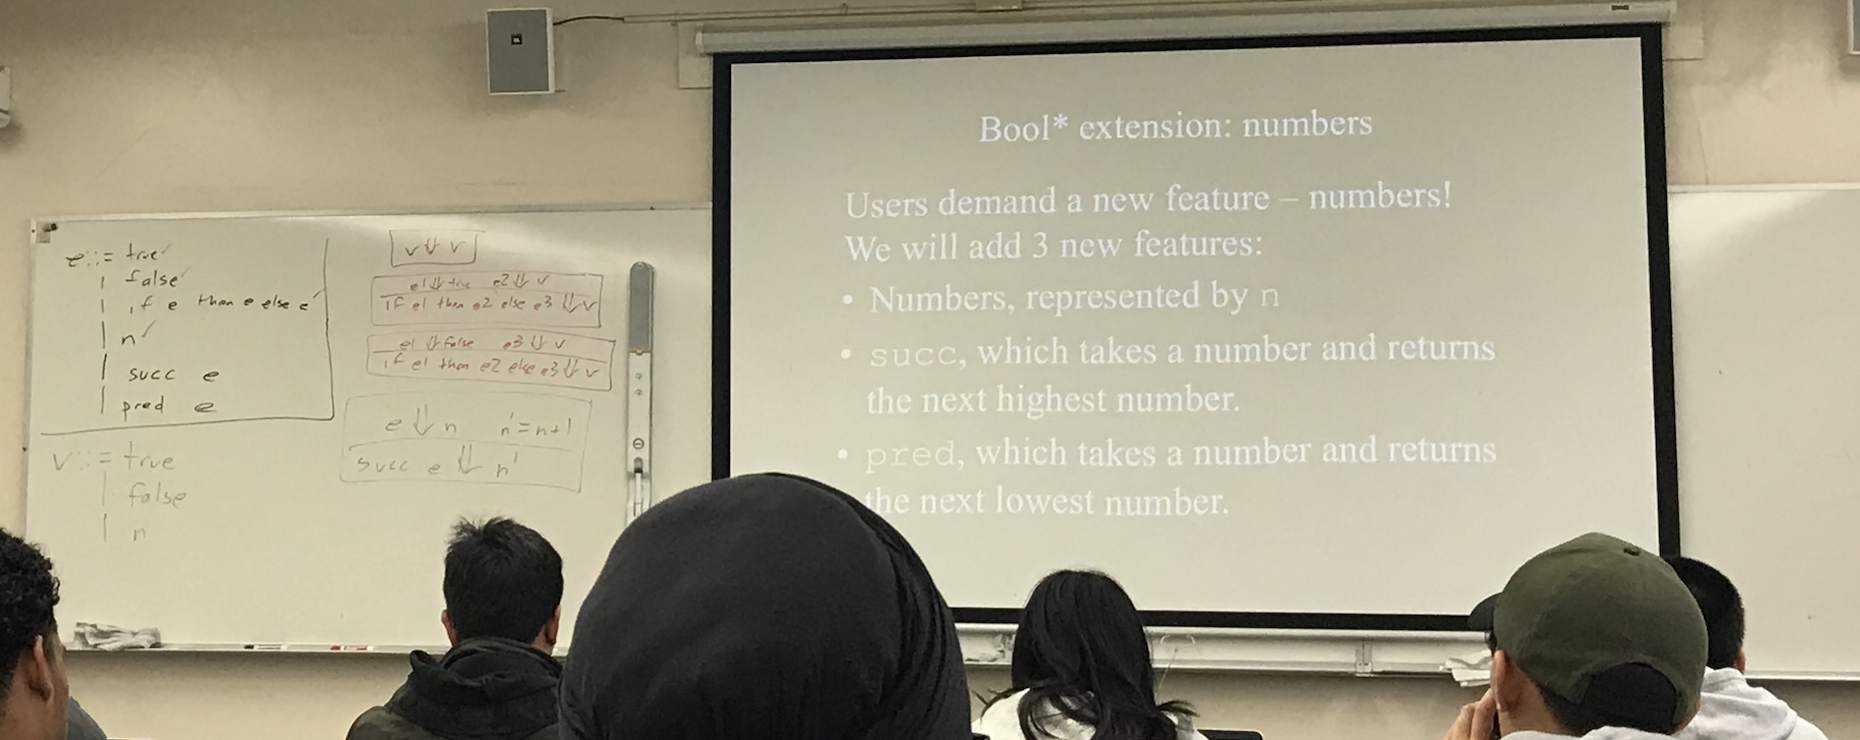 e::= true
| false
| if e then e else e
| n
| succ e
| pred e
v::= true
| false
| n
v ⇓ v
e1 ⇓ true e2 ⇓ v
if e1 then e2 else e3 ⇓ v
e1 ⇓ false e3 ⇓ v
if e1 then e2 else e3 ⇓ v
e ⇓ n n'=n+1
succ e ⇓ n'
Bool* extension: numbers
Users demand a new feature – numbers!
We will add 3 new features:
• Numbers, represented by n
• succ, which takes a number and returns
the next highest number.
• pred, which takes a number and returns
the next lowest number.